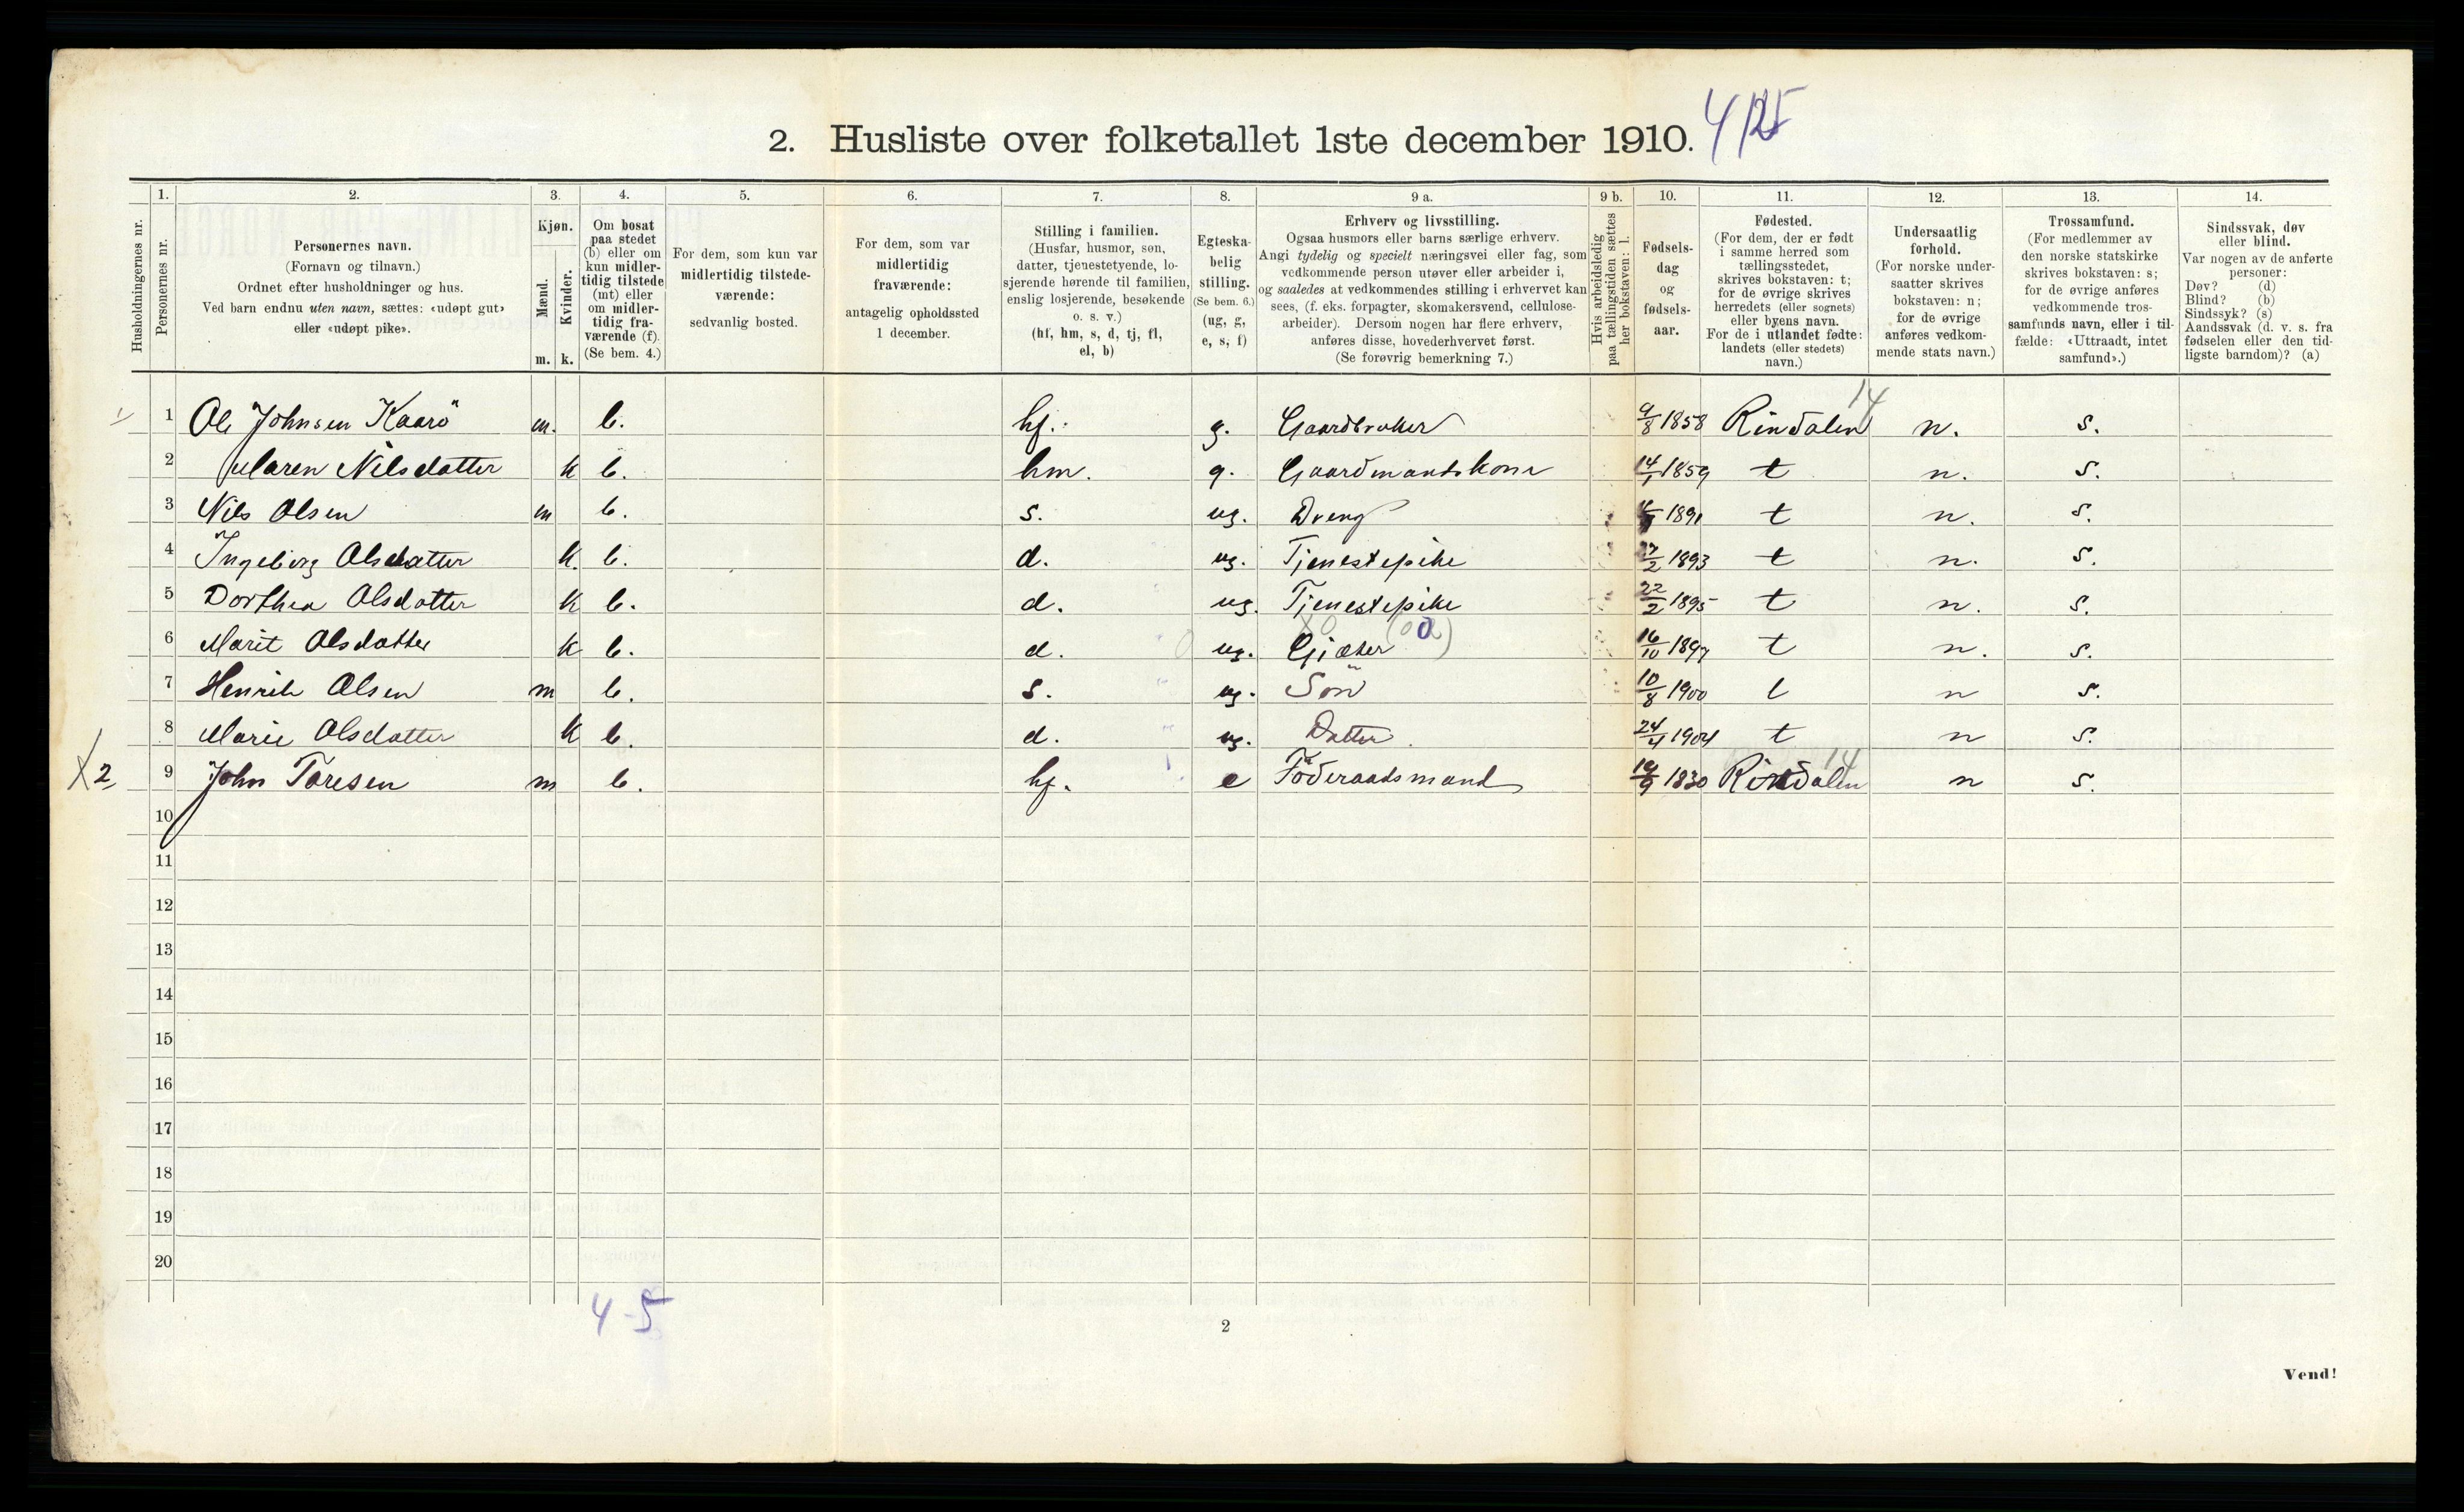 2. Husliste over folketallet 1ste december 1910.
1. 2. 3. 4. 5. 6. 7. 8. 9 a. 9 b. 10. 11. 12. 13. 14.
Husholdningernes nr.
Personernes nr.
Personernes navn.
(Fornavn og tilnavn.)
Ordnet efter husholdninger og hus.
Ved barn endnu uten navn, sættes: «udøpt gut»
eller «udøpt pike».
Kjøn.
Mænd.
Kvinder.
m. k.
Om bosat
paa stedet
(b) eller om
kun midler-
tidig tilstede
(mt) eller
om midler-
tidig fra-
værende (f).
(Se bem. 4.)
For dem, som kun var
midlertidig tilstede-
værende:
sedvanlig bosted.
For dem, som var
midlertidig
fraværende:
antagelig opholdssted
1 december.
Stilling i familien.
(Husfar, husmor, søn,
datter, tjenestetyende, lo-
sjerende hørende til familien,
enslig losjerende, besøkende
o. s. v.)
(hf, hm, s, d, tj, fl,
el, b)
Egteska-
belig
stilling.
(Se bem. 6.)
(ug, g,
e, s, f)
Erhverv og livsstilling.
Ogsaa husmors eller barns særlige erhverv.
Angi tydelig og specielt næringsvei eller fag, som
vedkommende person utøver eller arbeider i,
og saaledes at vedkommendes stilling i erhvervet kan
sees, (f. eks. forpagter, skomakersvend, cellulose-
arbeider). Dersom nogen har flere erhverv,
anføres disse, hovederhvervet først.
(Se forøvrig bemerkning 7.)
Hvis arbeidsledig
paa tællingstiden sættes
her bokstaven: l.
Fødsels-
dag
og
fødsels-
aar.
Fødested.
(For dem, der er født
i samme herred som
tællingsstedet,
skrives bokstaven: t;
for de øvrige skrives
herredets (eller sognets)
eller byens navn.
For de i utlandet fødte:
landets (eller stedets)
navn.)
Undersaatlig
forhold.
(For norske under-
saatter skrives
bokstaven: n;
for de øvrige
anføres vedkom-
mende stats navn.)
Trossamfund.
(For medlemmer av
den norske statskirke
skrives bokstaven: s;
for de øvrige anføres
vedkommende tros-
samfunds navn, eller i til-
fælde: «Uttraadt, intet
samfund».)
Sindssvak, døv
eller blind.
Var nogen av de anførte
personer:
Døv? (d)
Blind? (b)
Sindssyk? (s)
Aandssvak (d. v. s. fra
fødselen eller den tid-
ligste barndom)? (a)
1 Ole Johnsen Kaarö m. b. hf. g. Gaardbruker 9/8 1858 Rindalen 14 n. s.
2 Maren Nilsdatter k b. hm. g. Gaardmandskone 14/1 1859 t n. s.
3 Nils Olsen m b. s. ug. Dreng 1891 t n. s.
4 Ingeborg Olsdatter k. b. d. ug. Tjenestepike 1893 t n. s.
5 Dorthea Olsdatter k b. d. ug. Tjenestepike 22/2 1895 t n. s.
6 Marit Olsdatter k b. d. ug. Gjæter 16/10 1897 t n. s.
7 Henrik Olsen m b. s. ug. Sön 10/8 1900 t n s.
8 Marie Olsdatter k b. d. ug. Datter 24/4 1904 t n s.
X2 9 John Toresen m b. hf. e Föderaadsmand 1830 Rindalen 14 n s.
10
11
12
13
14
15
16
17
18
19
20
4-5
2
Vend!